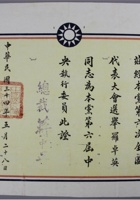 茲經本黨第六次全國
代表大會選舉羅卓英
同志為本黨第六屆中
央執行委員此證
總裁
中華民國三十四年五月二十八日